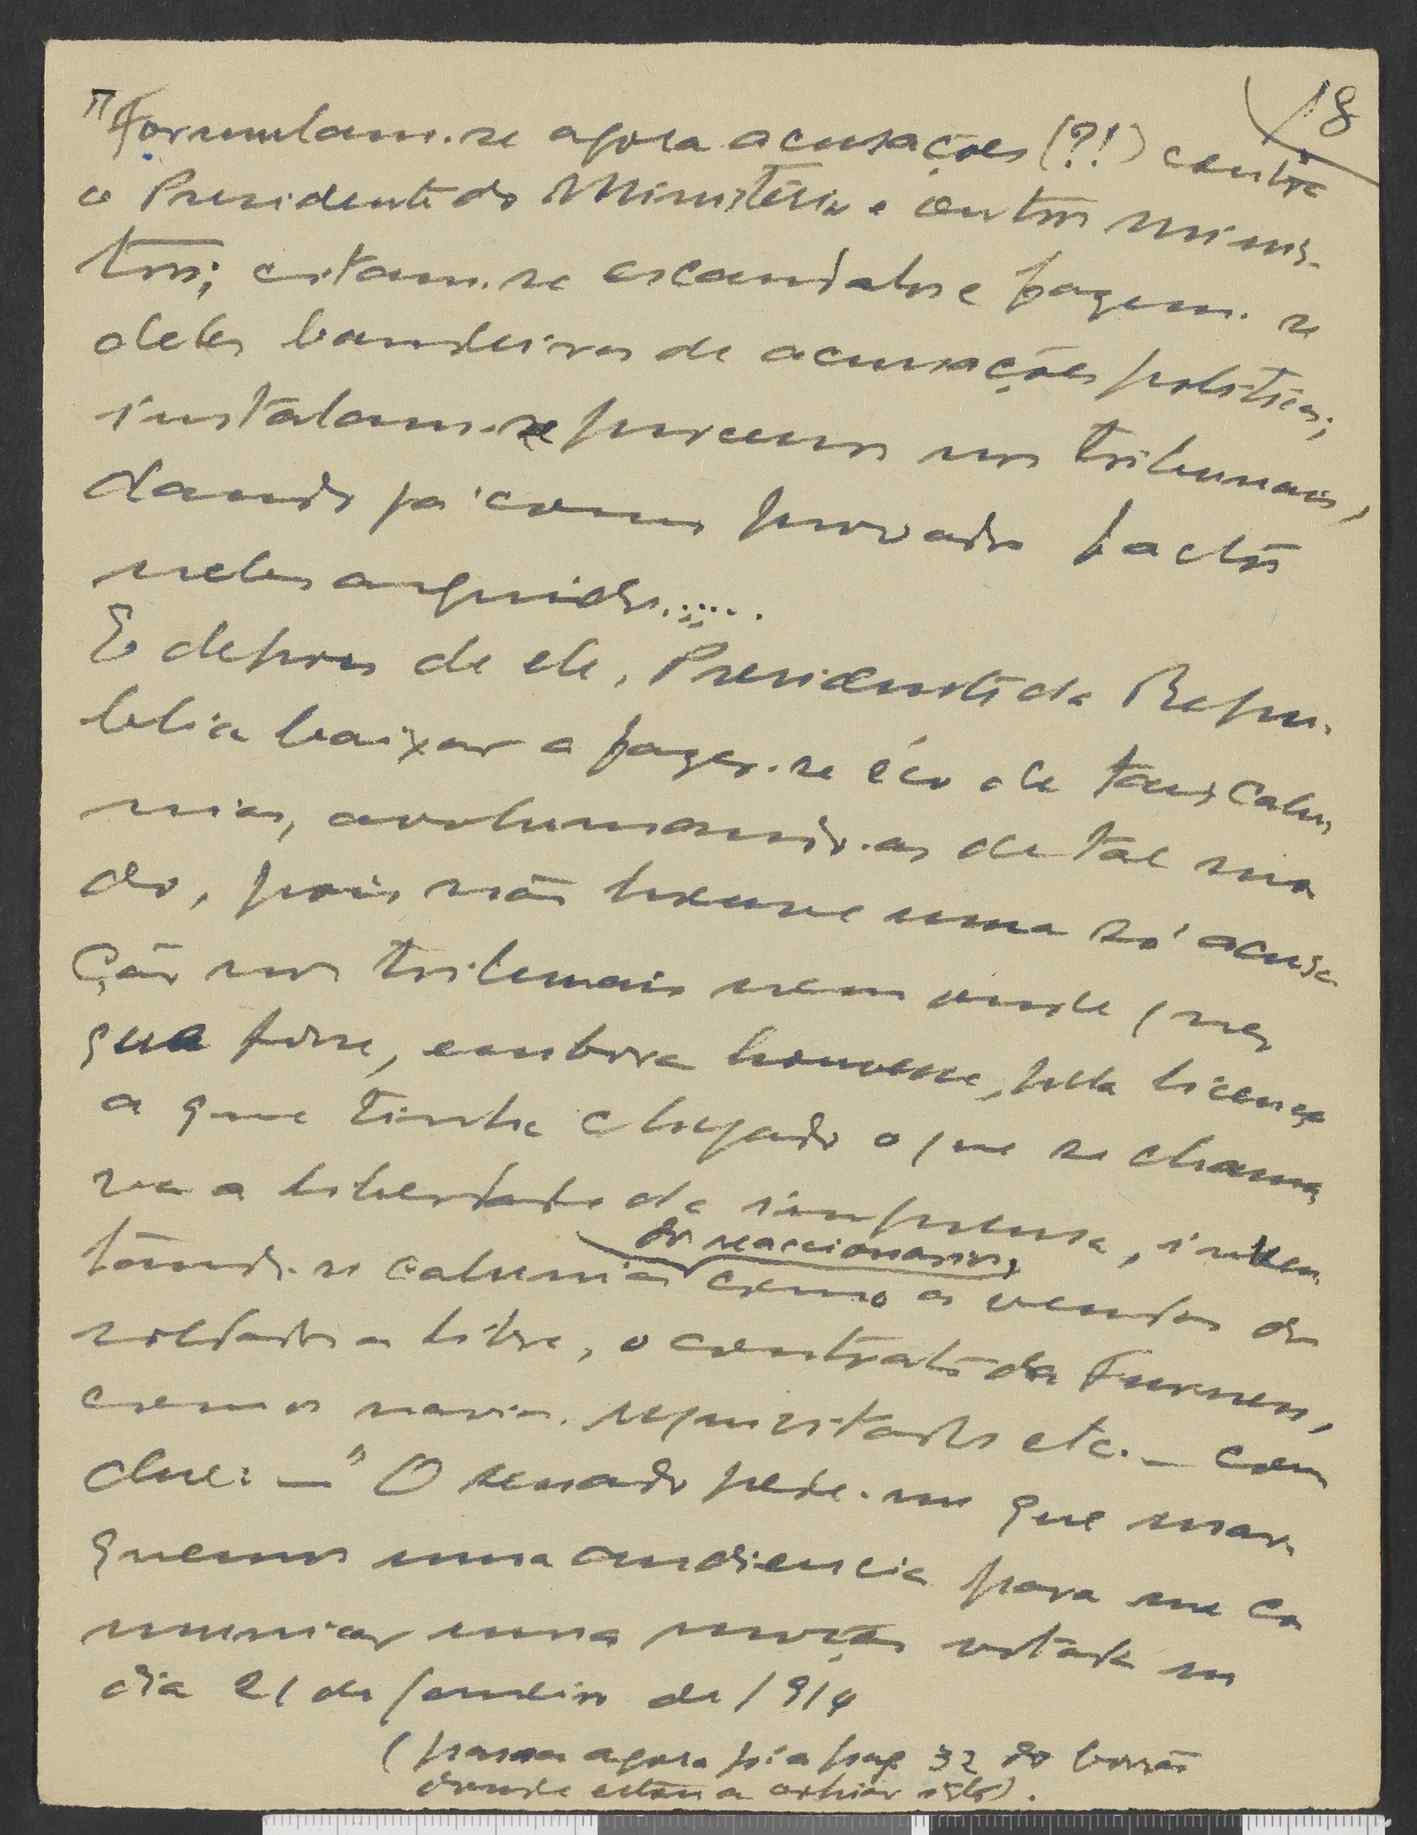 18
"Formulam-se agora acusações (?!) contra
o Presidente do Ministério e outros minis-
tros; citam-se escandalos e fazem-se
deles bandeiras de acusações politicas;
instalam-se processos nos tribunais,
dando já como provados factos
neles arguidos......
E depois de ele, Presidente da Repu-
blica baixar a fazer-se éco de tais calu
nias, avolumando-as de tal mo
do, pois não houve uma só acusa
ção nos tribunais nem onde quer
que fosse, embora houvesse, pela licença
a que tinha chegado o que se chama
va a liberdade de imprensa, inven
tando-se calunias dos reaccionarios, como as vendas de
soldados a libra, o contrato da Furness,
como os navios requisitados etc. — con
clue: — "O senado pede-me que mar-
quemos uma audiencia para me co
municar uma moção votada no
dia 21 de janeiro de 1914
(passa agora pª a pag. 32 do borrão
donde estou a copiar isto).